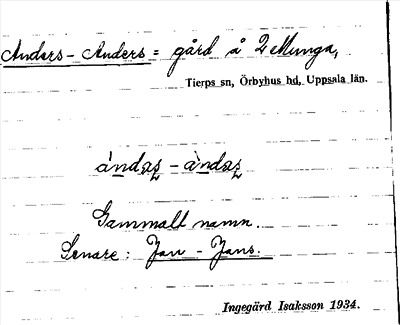 Anders-Anders = gård å 2 Munga,
Tierps sn, Örbyhus hd, Uppsala län.
àndas̨ - àndas̨
Gammalt namn.
Senare: Jan - Jans.
Ingegärd Isaksson 1934.